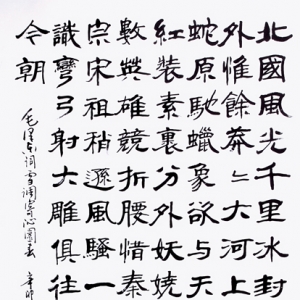 北國風光千里冰封
外惟餘莽〻大河上
蛇原馳蠟象欲与天
紅裝素裹分外妖嬈
數英雄競折腰惜秦
宗宋祖稍遜風騷一
識彎弓射大雕俱往
今朝
毛澤東詞雪調寄沁園春 辛卯